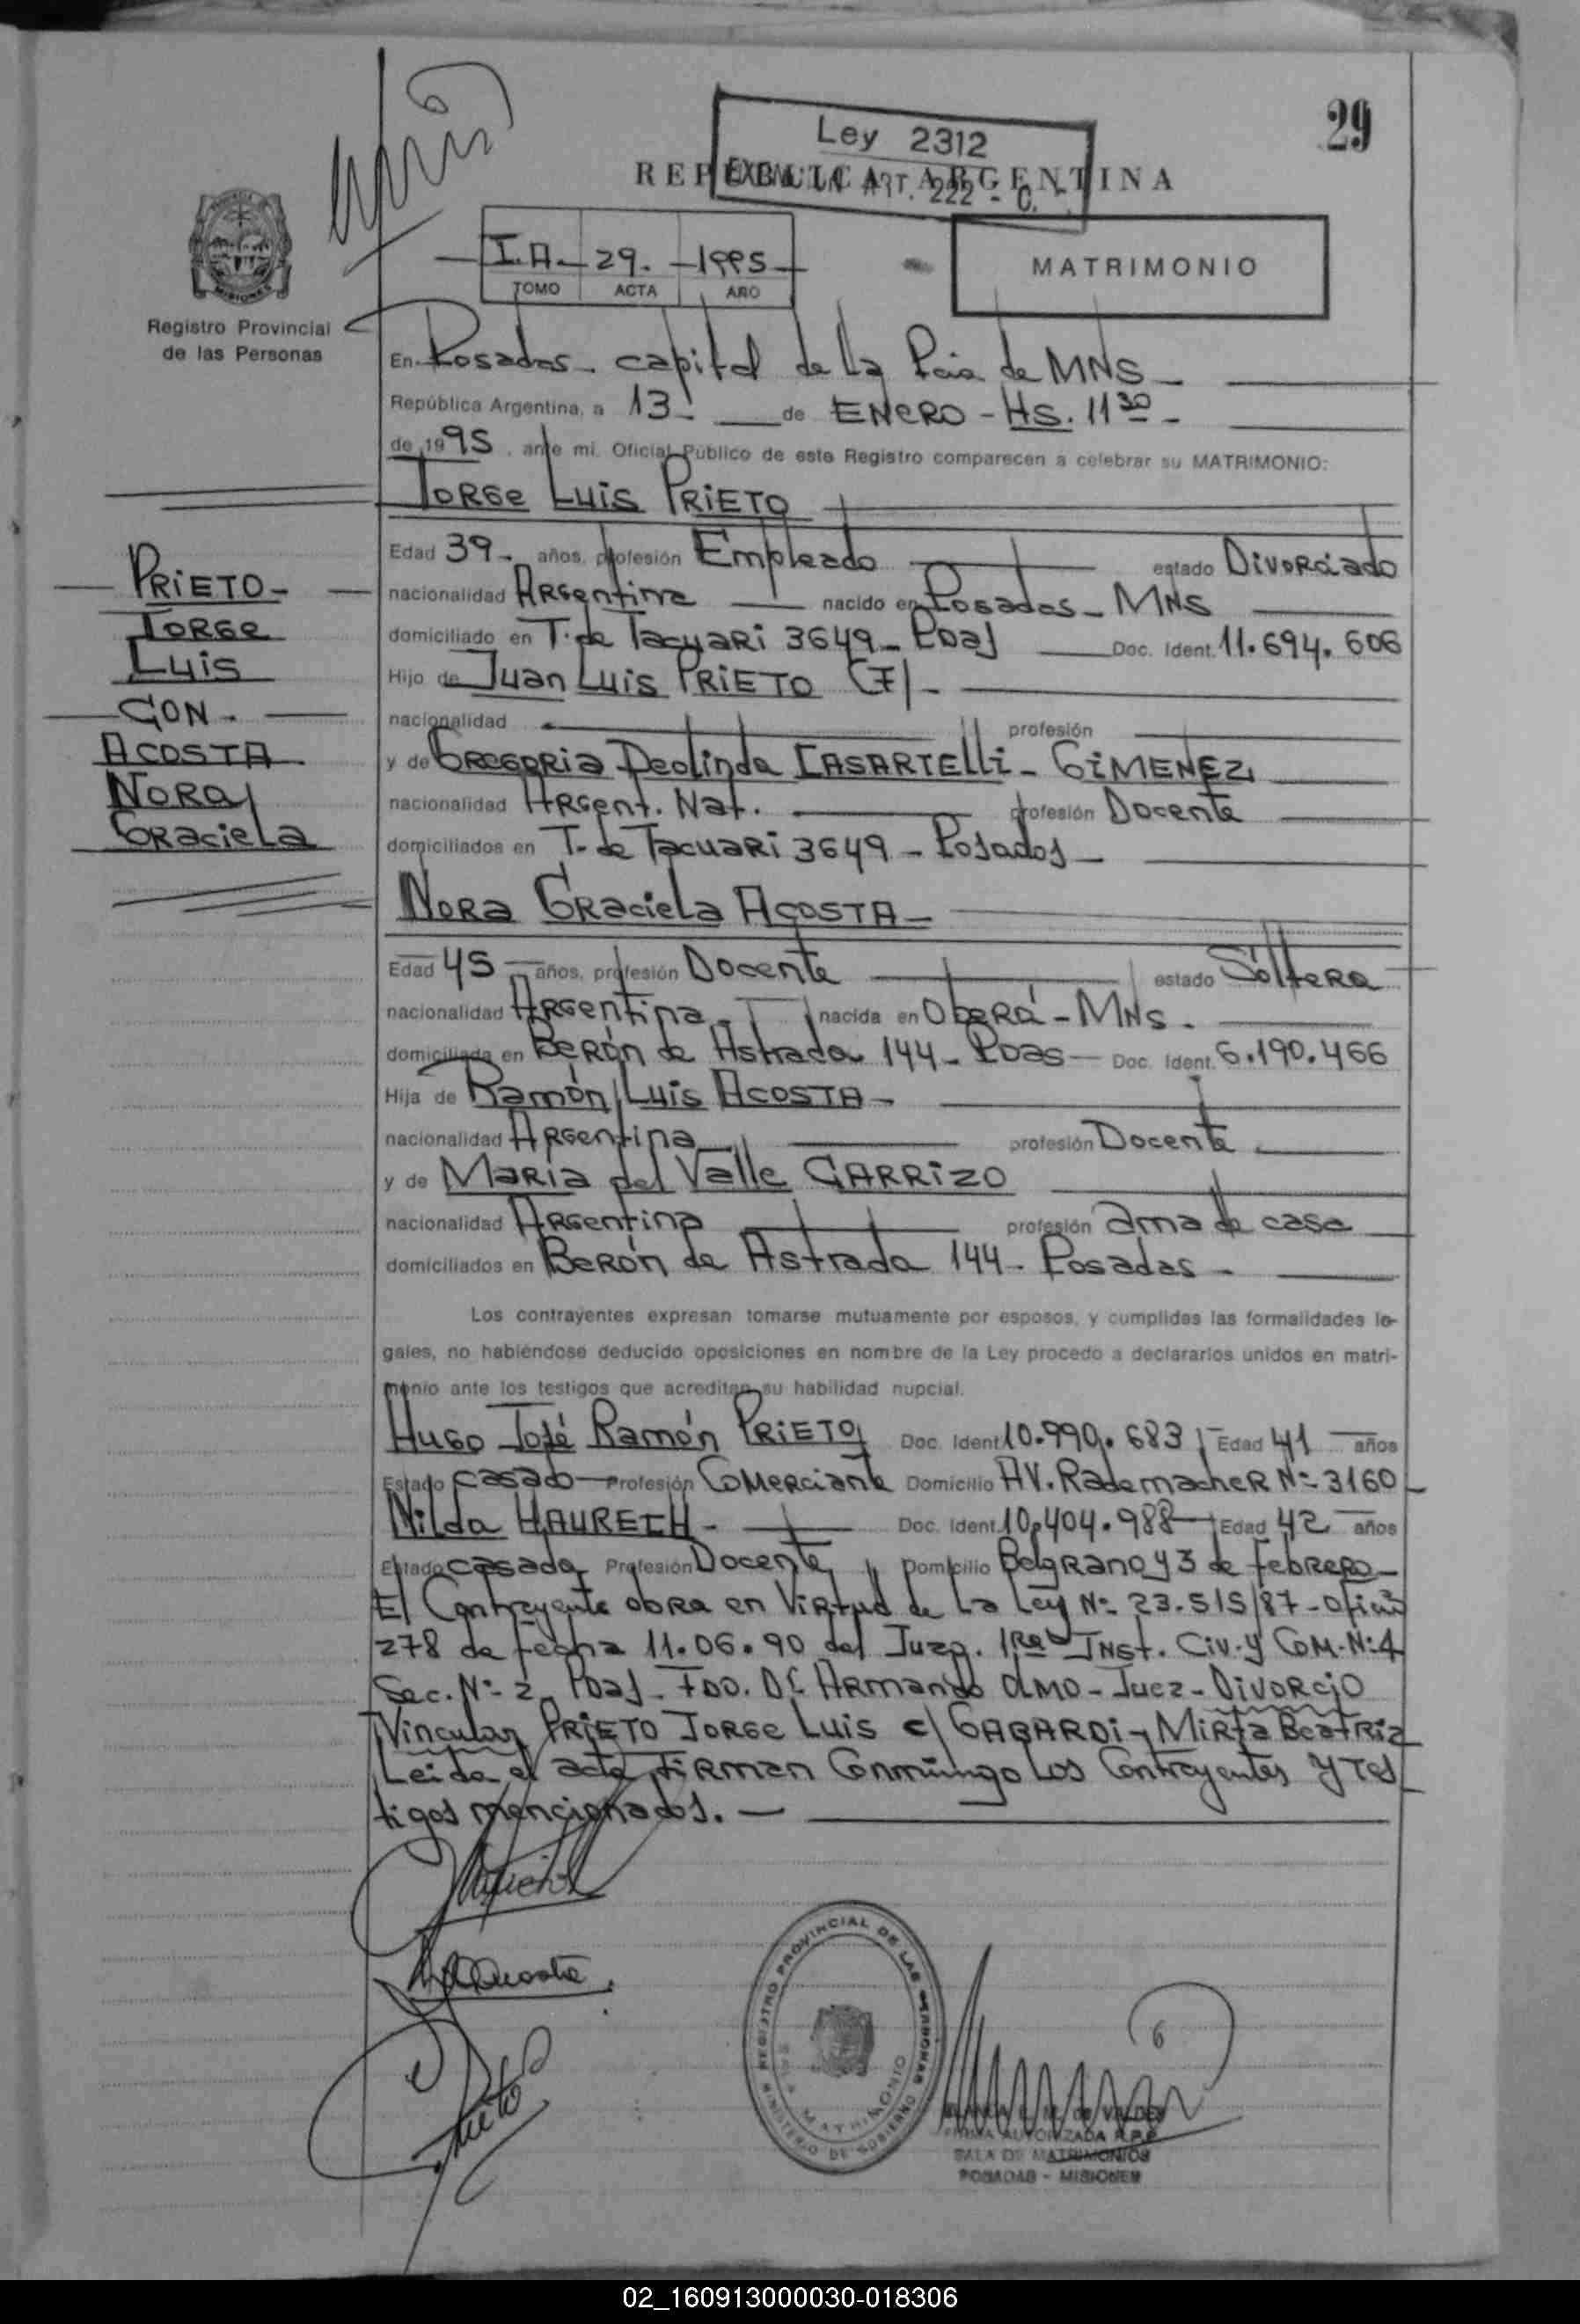 29
Ley 2312
REPUBLICA ARGENTINA
ART. 222 - C.
I.A. - 29. - 1995
TOMO ACTA AÑO
MATRIMONIO
MISIONES
Registro Provincial
de las Personas
En Posadas - capital de la Pcia de MNS -
República Argentina, a 13 - de ENERO - Hs. 11 30 -
de 1995, ante mi. Oficial Público de este Registro comparecen a celebrar su MATRIMONIO:
JORGE LUIS PRIETO
PRIETO -
JORGE
LUIS
CON -
ACOSTA
NORA
GRACIELA
Edad 39 - años, profesión Empleado estado Divorciado
nacionalidad Argentina nacido en Posadas - MNS
domiciliado en T. de Tacuari 3649 - Pdas Doc. Ident. 11.694.606
Hijo de Juan Luis PRIETO (F) -
nacionalidad profesión
y de GREGORIA Deolinda CASARTELLI - GIMENEZ
nacionalidad Argent. Nat. profesión Docente
domiciliados en T. de Tacuari 3649 - Posadas -
NORA GRACIELA ACOSTA -
Edad 45 años, profesión Docente estado Soltera
nacionalidad Argentina - nacida en Oberá - MNS -
domiciliada en Berón de Astrada 144 - Pdas - Doc. Ident. 6.190.466
Hija de Ramón Luis ACOSTA -
nacionalidad Argentina profesión Docente
y de MARIA del Valle CARRIZO
nacionalidad Argentina profesión ama de casa
domiciliados en Berón de Astrada 144 - Posadas -
Los contrayentes expresan tomarse mutuamente por esposos, y cumplidas las formalidades le-
gales, no habiéndose deducido oposiciones en nombre de la Ley procedo a declararlos unidos en matri-
monio ante los testigos que acreditan su habilidad nupcial.
Hugo José Ramón PRIETO Doc. Ident 10.990.683 Edad 41 años
Estado casado Profesión Comerciante Domicilio AV. Rademacher Nº 3160 -
Nilda HAURECH - Doc. Ident. 10.404.988 Edad 42 años
Estado casada Profesión Docente Domicilio Belgrano y 3 de febrero -
El Contrayente obra en Virtud de La Ley Nº 23.515/87 - Oficio
278 de fecha 11.06.90 del Juzg. 1ra Inst. Civ. y Com. Nº 4
Sec. Nº 2 Pdas - Fdo. Dr. Armando OLMO - Juez - Divorcio
Vincular PRIETO JORGE LUIS c/ GABARDI - Mirta Beatriz
Leida el acta firman Conmingo Los Contrayentes y Tes
tigos mencionados. -
REGISTRO PROVINCIAL DE LAS PERSONAS
MATRIMONIO
MINISTERIO DE GOBIERNO
Prieto
FIRMA AUTORIZADA R.P.P.
SALA DE MATRIMONIOS
POSADAS - MISIONES
02_160913000030-018306